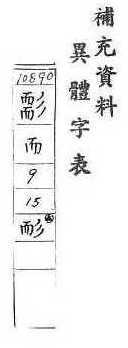 補充資料
異體字表
10890
而
9
15
耏